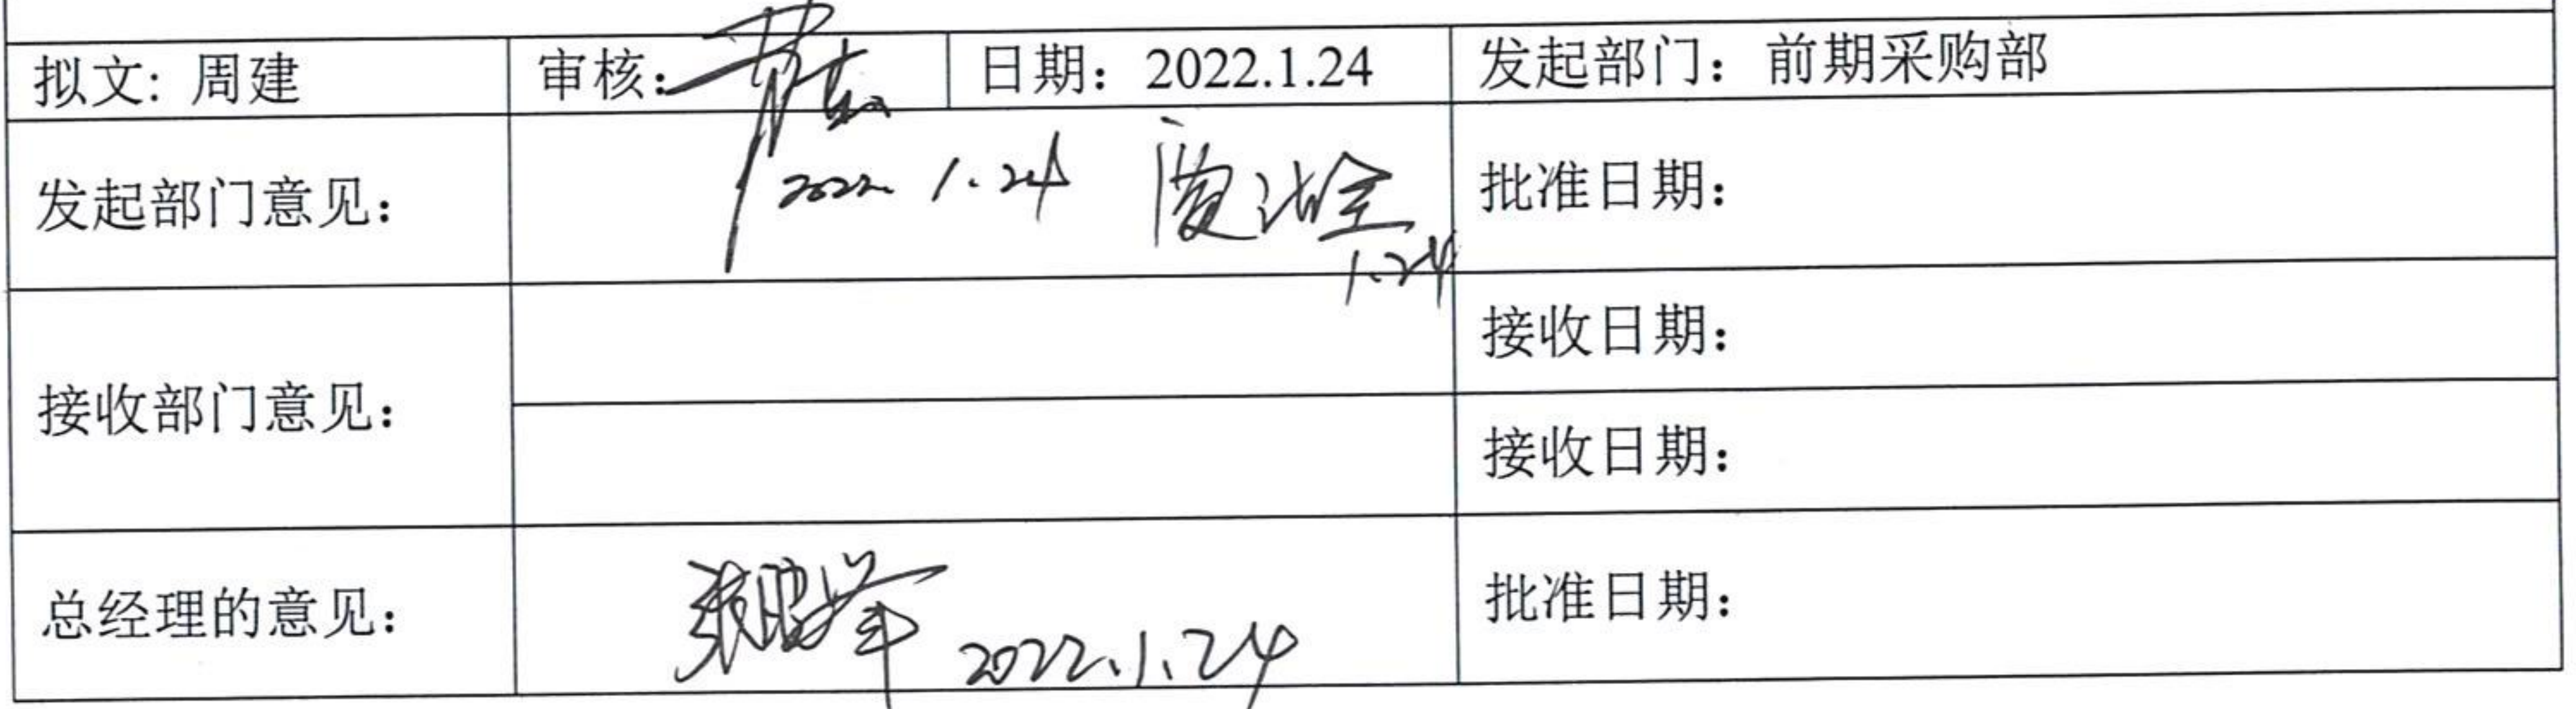 拟文: 周建 审核: 日期: 2022.1.24 发起部门: 前期采购部
发起部门意见: 2022. 1.24 批准日期:
1.24
接收日期:
接收部门意见:
接收日期:
总经理的意见: 2022.1.24 批准日期: